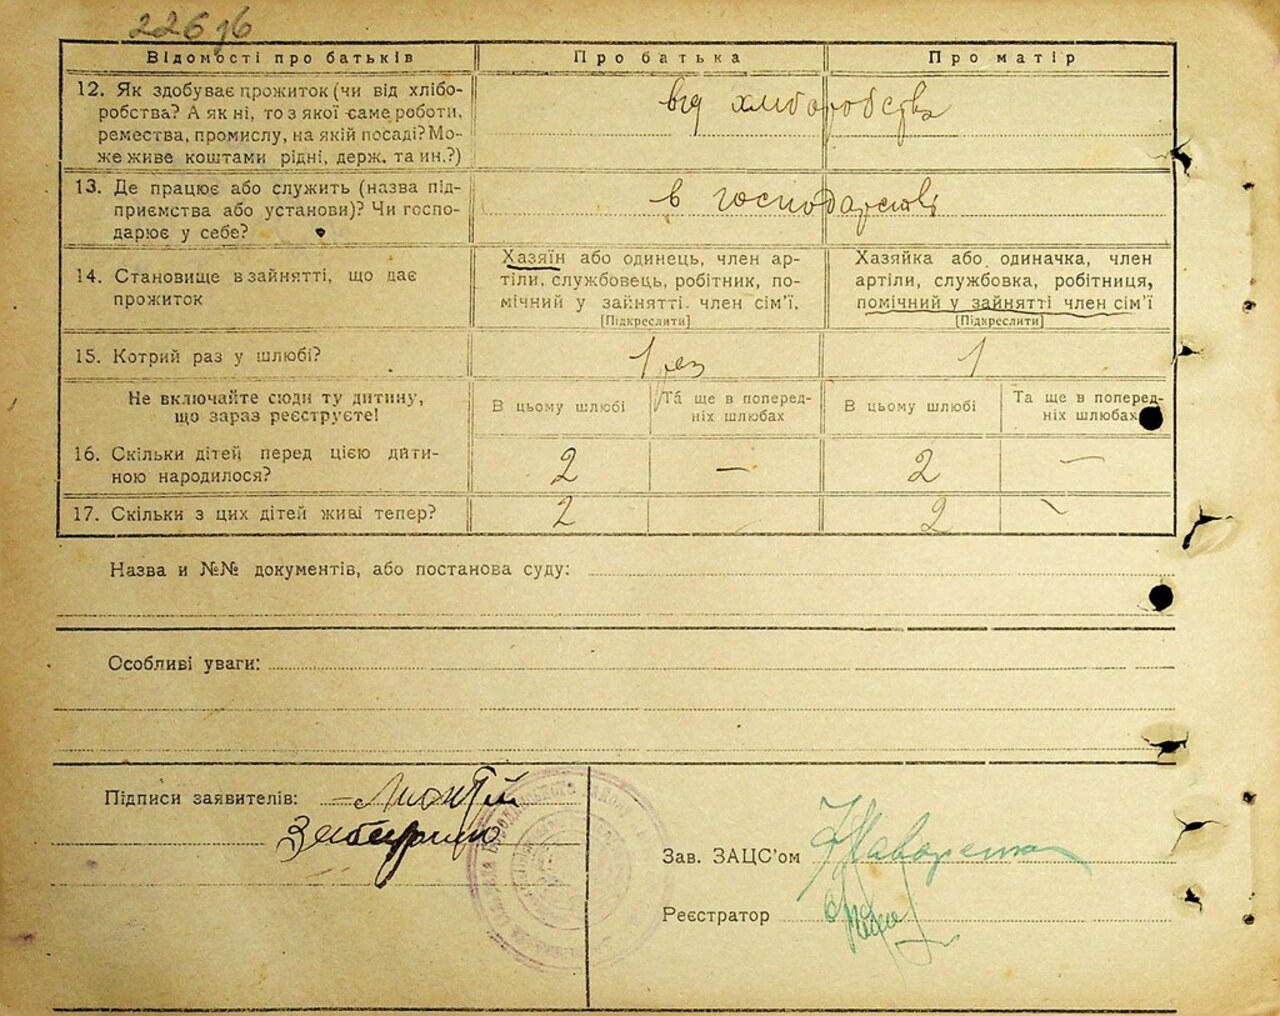 226
Відомості про батьків
Про батька
Про матір
12. Як здобуває прожиток (чи від хлібо-
робства? А як ні, то з якої саме роботи,
ремества, промислу, на якій посаді? Мо-
же живе коштами рідні, держ. та ин.?)
від хліборобства
13. Де працює або служить (назва під-
приємства або установи)? Чи госпо-
дарює у себе?
в господарстві
14. Становище в зайнятті, що дає
прожиток
Хазяїн або одинець, член ар-
тіли, службовець, робітник, по-
мічний у зайнятті член сім'ї.
[Підкреслити]
Хазяйка або одиначка, член
артіли, службовка, робітниця,
помічний у зайнятті член сім'ї
[Підкреслити]
15. Котрий раз у шлюбі?
1 раз
1
Не включайте сюди ту дитину,
що зараз реєструєте!
В цьому шлюбі
Та ще в поперед-
ніх шлюбах
В цьому шлюбі
Та ще в поперед-
ніх шлюбах
16. Скільки дітей перед цією дити-
ною народилося?
2
—
2
—
17. Скільки з цих дітей живі тепер?
2
2
—
Назва и №№ документів, або постанова суду:
Особливі уваги:
Підписи заявителів:
Зав. ЗАЦС'ом
Реєстратор